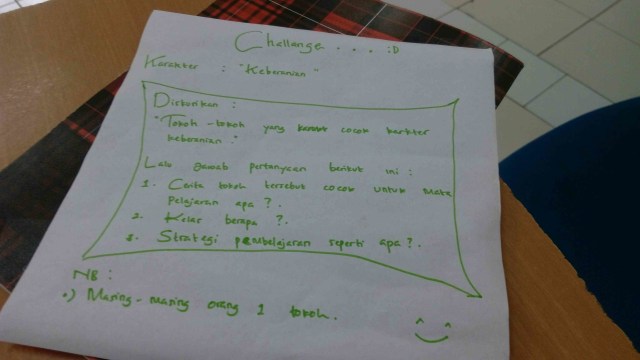 Challange . . . :D
Karakter : "Keberanian"
Diskusikan :
"Tokoh-tokoh yang cocok karakter
keberanian."
Lalu jawab pertanyaan berikut ini :
1. Cerita tokoh tersebut cocok untuk mata
pelajaran apa ?.
2. Kelas berapa ?.
3. Strategi pembelajaran seperti apa ?.
NB :
•) Masing-masing orang 1 tokoh.